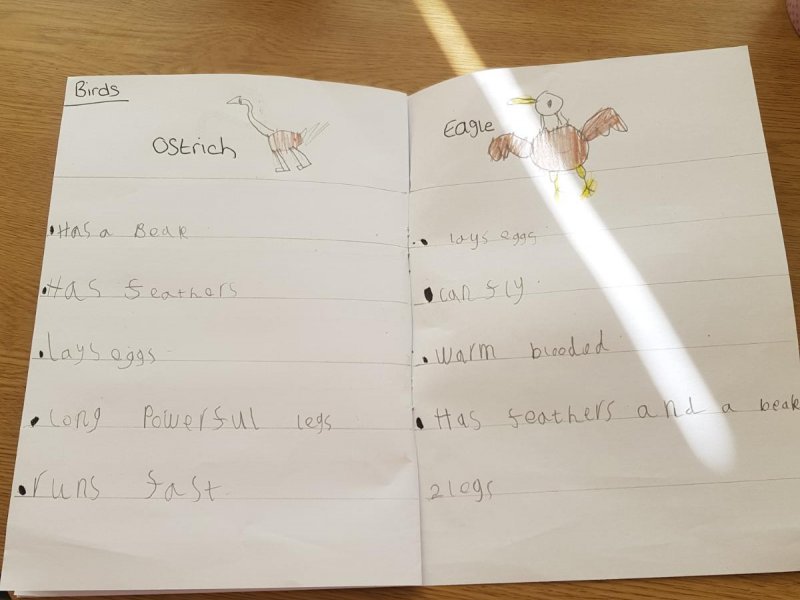 Birds
Ostrich
• Has a Beak
• Has feathers
• lays eggs
• long Powerful legs
• runs fast
Eagle
• lays eggs
• can fly
• warm blooded
• Has feathers and a beak
2 legs